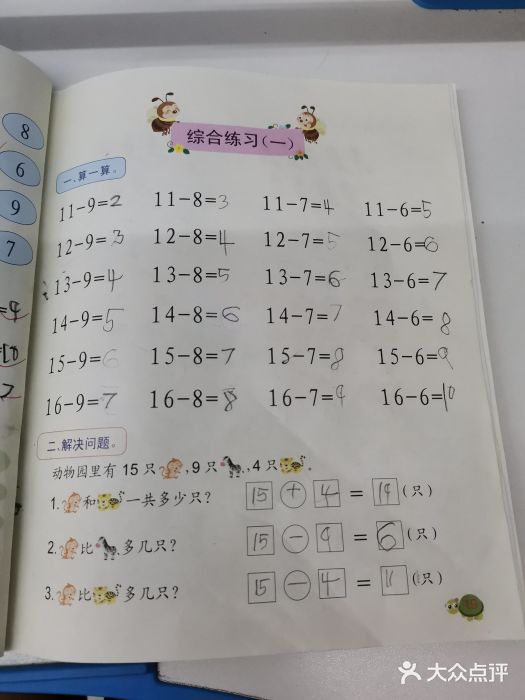 综合练习(一)
8
6
9
7
一、算一算。
11-9=2 11-8=3 11-7=4 11-6=5
12-9=3 12-8=4 12-7=5 12-6=6
13-9=4 13-8=5 13-7=6 13-6=7
14-9=5 14-8=6 14-7=7 14-6=8
15-9=6 15-8=7 15-7=8 15-6=9
16-9=7 16-8=8 16-7=9 16-6=10
二、解决问题。
动物园里有15只,9只,4只。
1.和一共多少只? 15+4=19(只)
2.比多几只? 15-9=6(只)
3.比多几只? 15-4=11(只)
大众点评